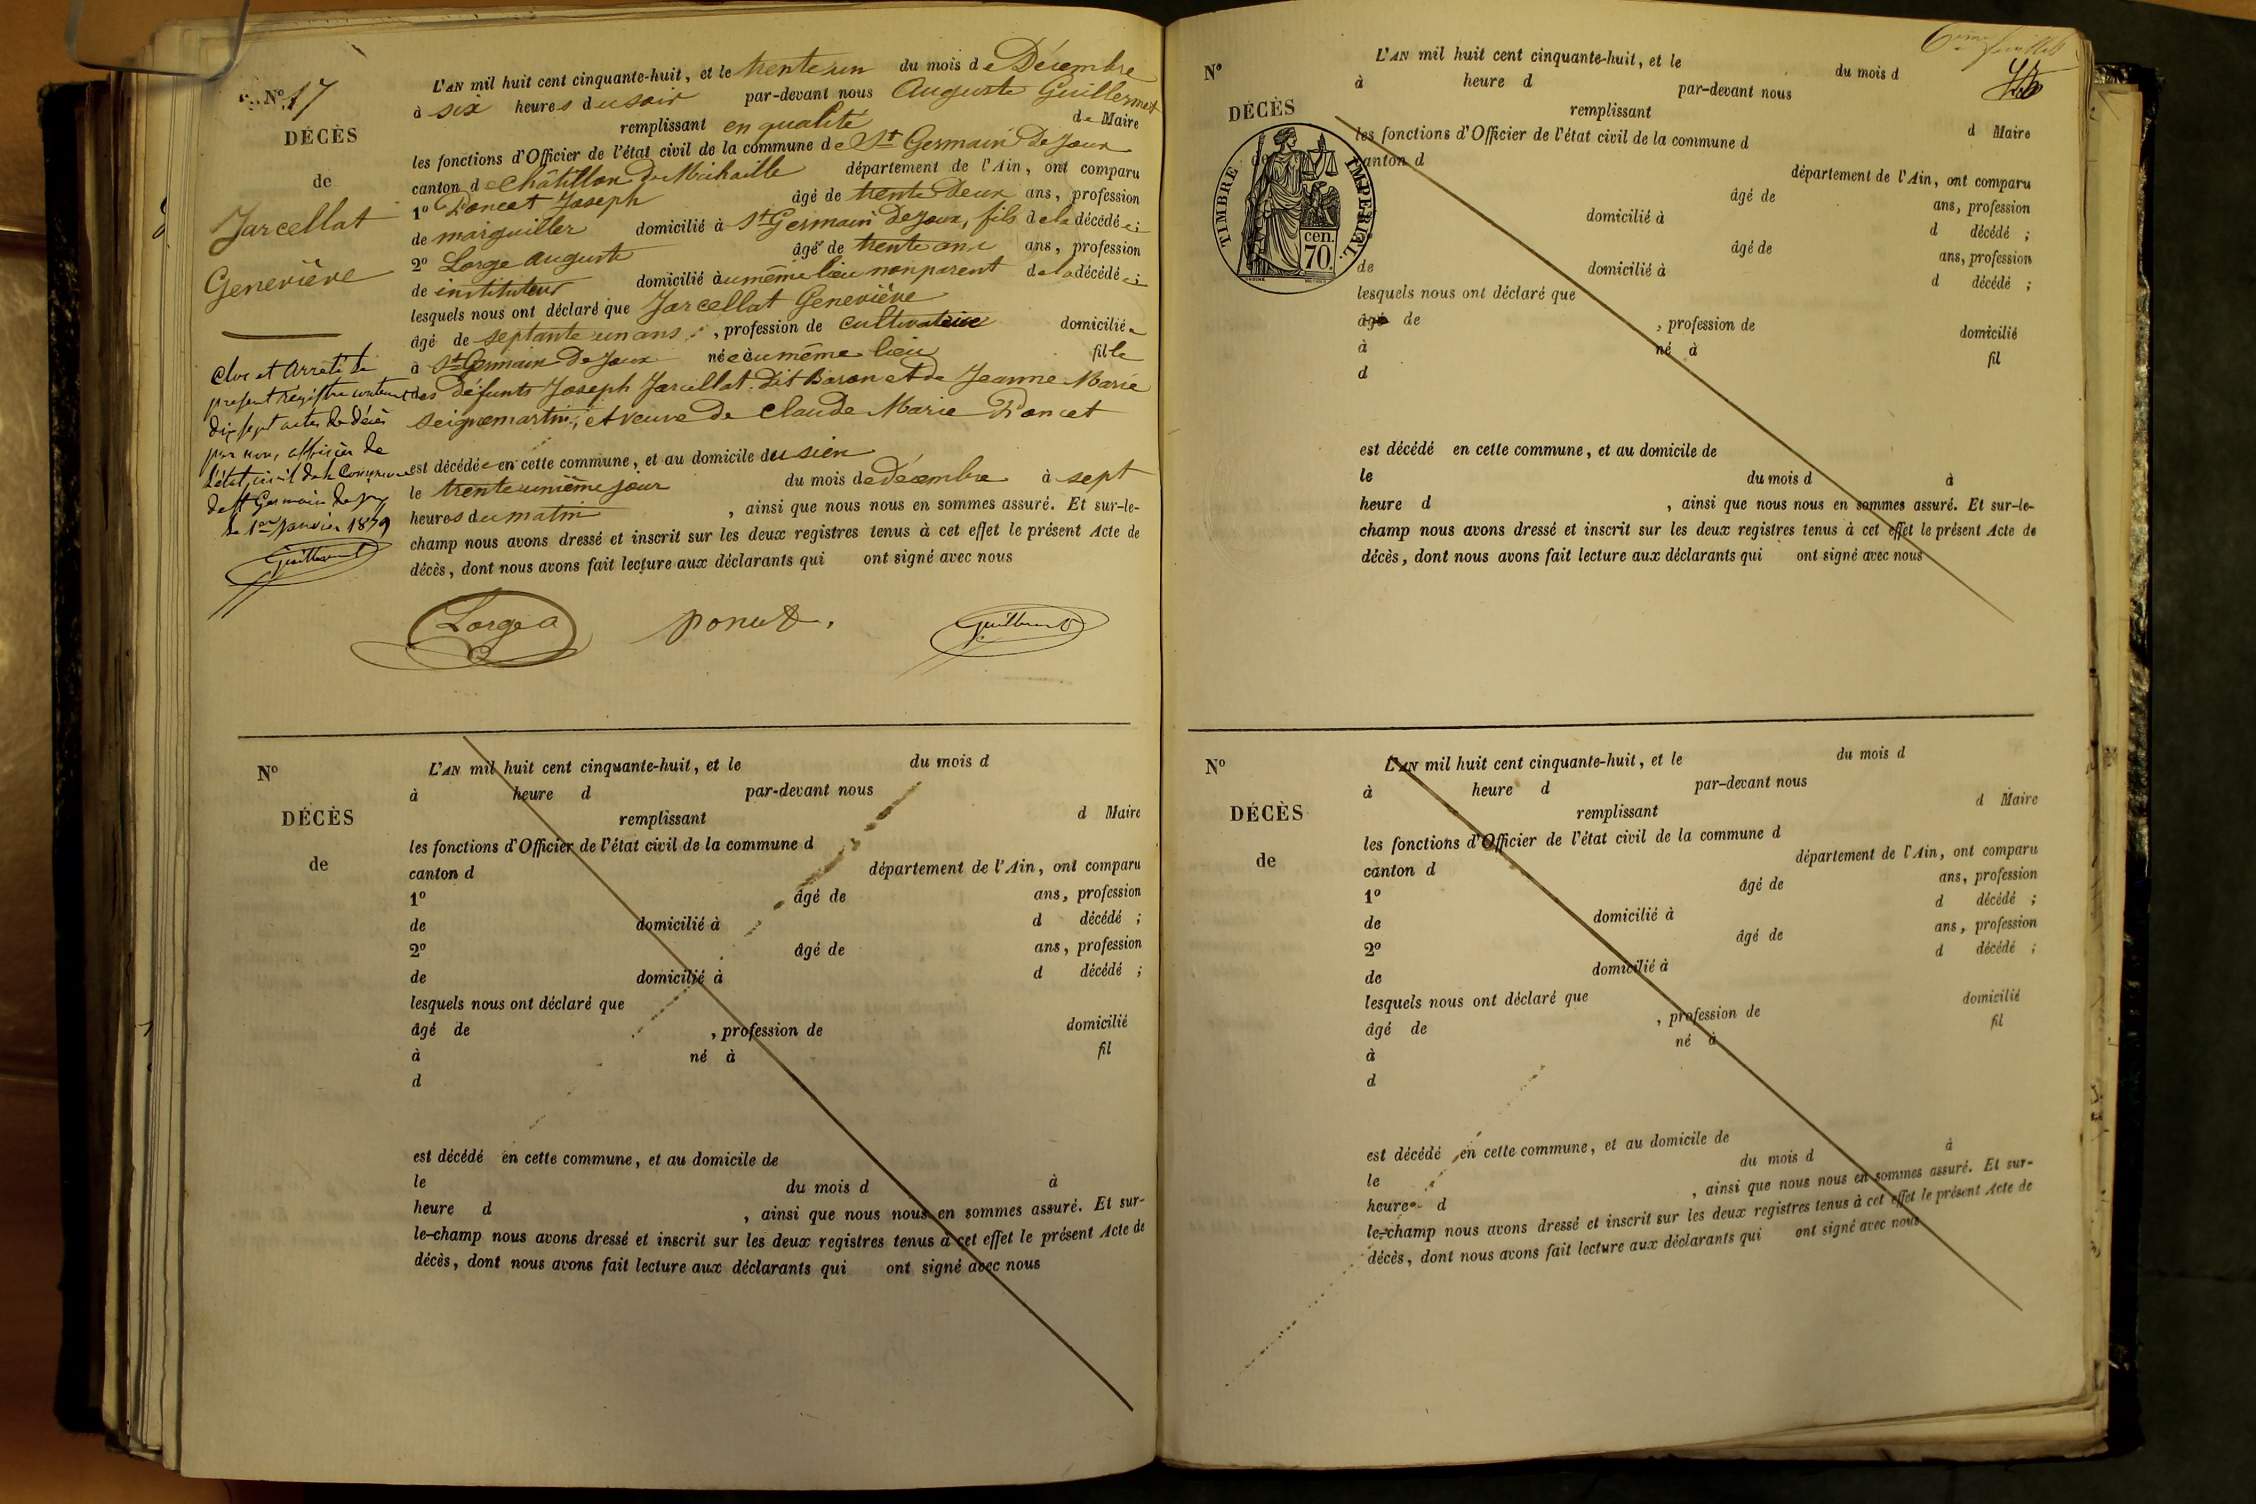 N° 17
DÉCÈS
de
Jarcellat
Geneviève
L'AN mil huit cent cinquante-huit, et le trente un du mois de Décembre
à six heures du soir par-devant nous Auguste Guillermet
remplissant en qualité de Maire
les fonctions d'Officier de l'état civil de la commune de St Germain De Joux
canton de Châtillon De Michaille département de l'Ain, ont comparu
1° Poncet Joseph âgé de trente Deux ans, profession
de marguiller domicilié à St Germain De Joux, fils de la décédée ;
2° Lorge Auguste âgé de trente ans, profession
de instituteur domicilié au même lieu non parent de la décédée ;
lesquels nous ont déclaré que Jarcellat Geneviève
âgé de septante un ans, profession de cultivatrice domiciliée
à St Germain De Joux née au même lieu fille
des défunts Joseph Jarcellat Dit Baron et de Jeanne Marie
Seignemartin, et veuve De Claude Marie Poncet
est décédée en cette commune, et au domicile du sien
le trente unième jour du mois de Décembre à sept
heures du matin, ainsi que nous nous en sommes assuré. Et sur-le-
champ nous avons dressé et inscrit sur les deux registres tenus à cet effet le présent Acte de
décès, dont nous avons fait lecture aux déclarants qui ont signé avec nous
Lorge a Poncet. Guillermet
Clos et Arrêté le
présent régistre contenant
dix sept actes de décès
par nous, officier de
l'état civil de la Commune
de St Germain de Joux
le 1er Janvier 1859
Guillermet
N°
DÉCÈS
de
L'AN mil huit cent cinquante-huit, et le du mois d
à heure d par-devant nous
remplissant d Maire
les fonctions d'Officier de l'état civil de la commune d
canton d département de l'Ain, ont comparu
1° âgé de ans, profession
de domicilié à d décédé ;
2° âgé de ans, profession
de domicilié à d décédé ;
lesquels nous ont déclaré que
âgé de , profession de domicilié
à né à fil
d
est décédé en cette commune, et au domicile de
le du mois d à
heure d , ainsi que nous nous en sommes assuré. Et sur-
le-champ nous avons dressé et inscrit sur les deux registres tenus à cet effet le présent Acte de
décès, dont nous avons fait lecture aux déclarants qui ont signé avec nous
6ème feuillet
N°
DÉCÈS
de
TIMBRE IMPERIAL
70 cen.
L'AN mil huit cent cinquante-huit, et le du mois d
à heure d par-devant nous
remplissant d Maire
les fonctions d'Officier de l'état civil de la commune d
canton d département de l'Ain, ont comparu
âgé de ans, profession
domicilié à d décédé ;
âgé de ans, profession
de domicilié à d décédé ;
lesquels nous ont déclaré que
âgé de , profession de domicilié
à né à fil
d
est décédé en cette commune, et au domicile de
le du mois d à
heure d , ainsi que nous nous en sommes assuré. Et sur-le-
champ nous avons dressé et inscrit sur les deux registres tenus à cet effet le présent Acte de
décès, dont nous avons fait lecture aux déclarants qui ont signé avec nous
N°
DÉCÈS
de
L'AN mil huit cent cinquante-huit, et le du mois d
à heure d par-devant nous
remplissant d Maire
les fonctions d'Officier de l'état civil de la commune d
canton d département de l'Ain, ont comparu
1° âgé de ans, profession
de domicilié à d décédé ;
2° âgé de ans, profession
de domicilié à d décédé ;
lesquels nous ont déclaré que
âgé de , profession de domicilié
à né à fil
d
est décédé en cette commune, et au domicile de
le du mois d à
heure d , ainsi que nous nous en sommes assuré. Et sur-
le-champ nous avons dressé et inscrit sur les deux registres tenus à cet effet le présent Acte de
décès, dont nous avons fait lecture aux déclarants qui ont signé avec nous